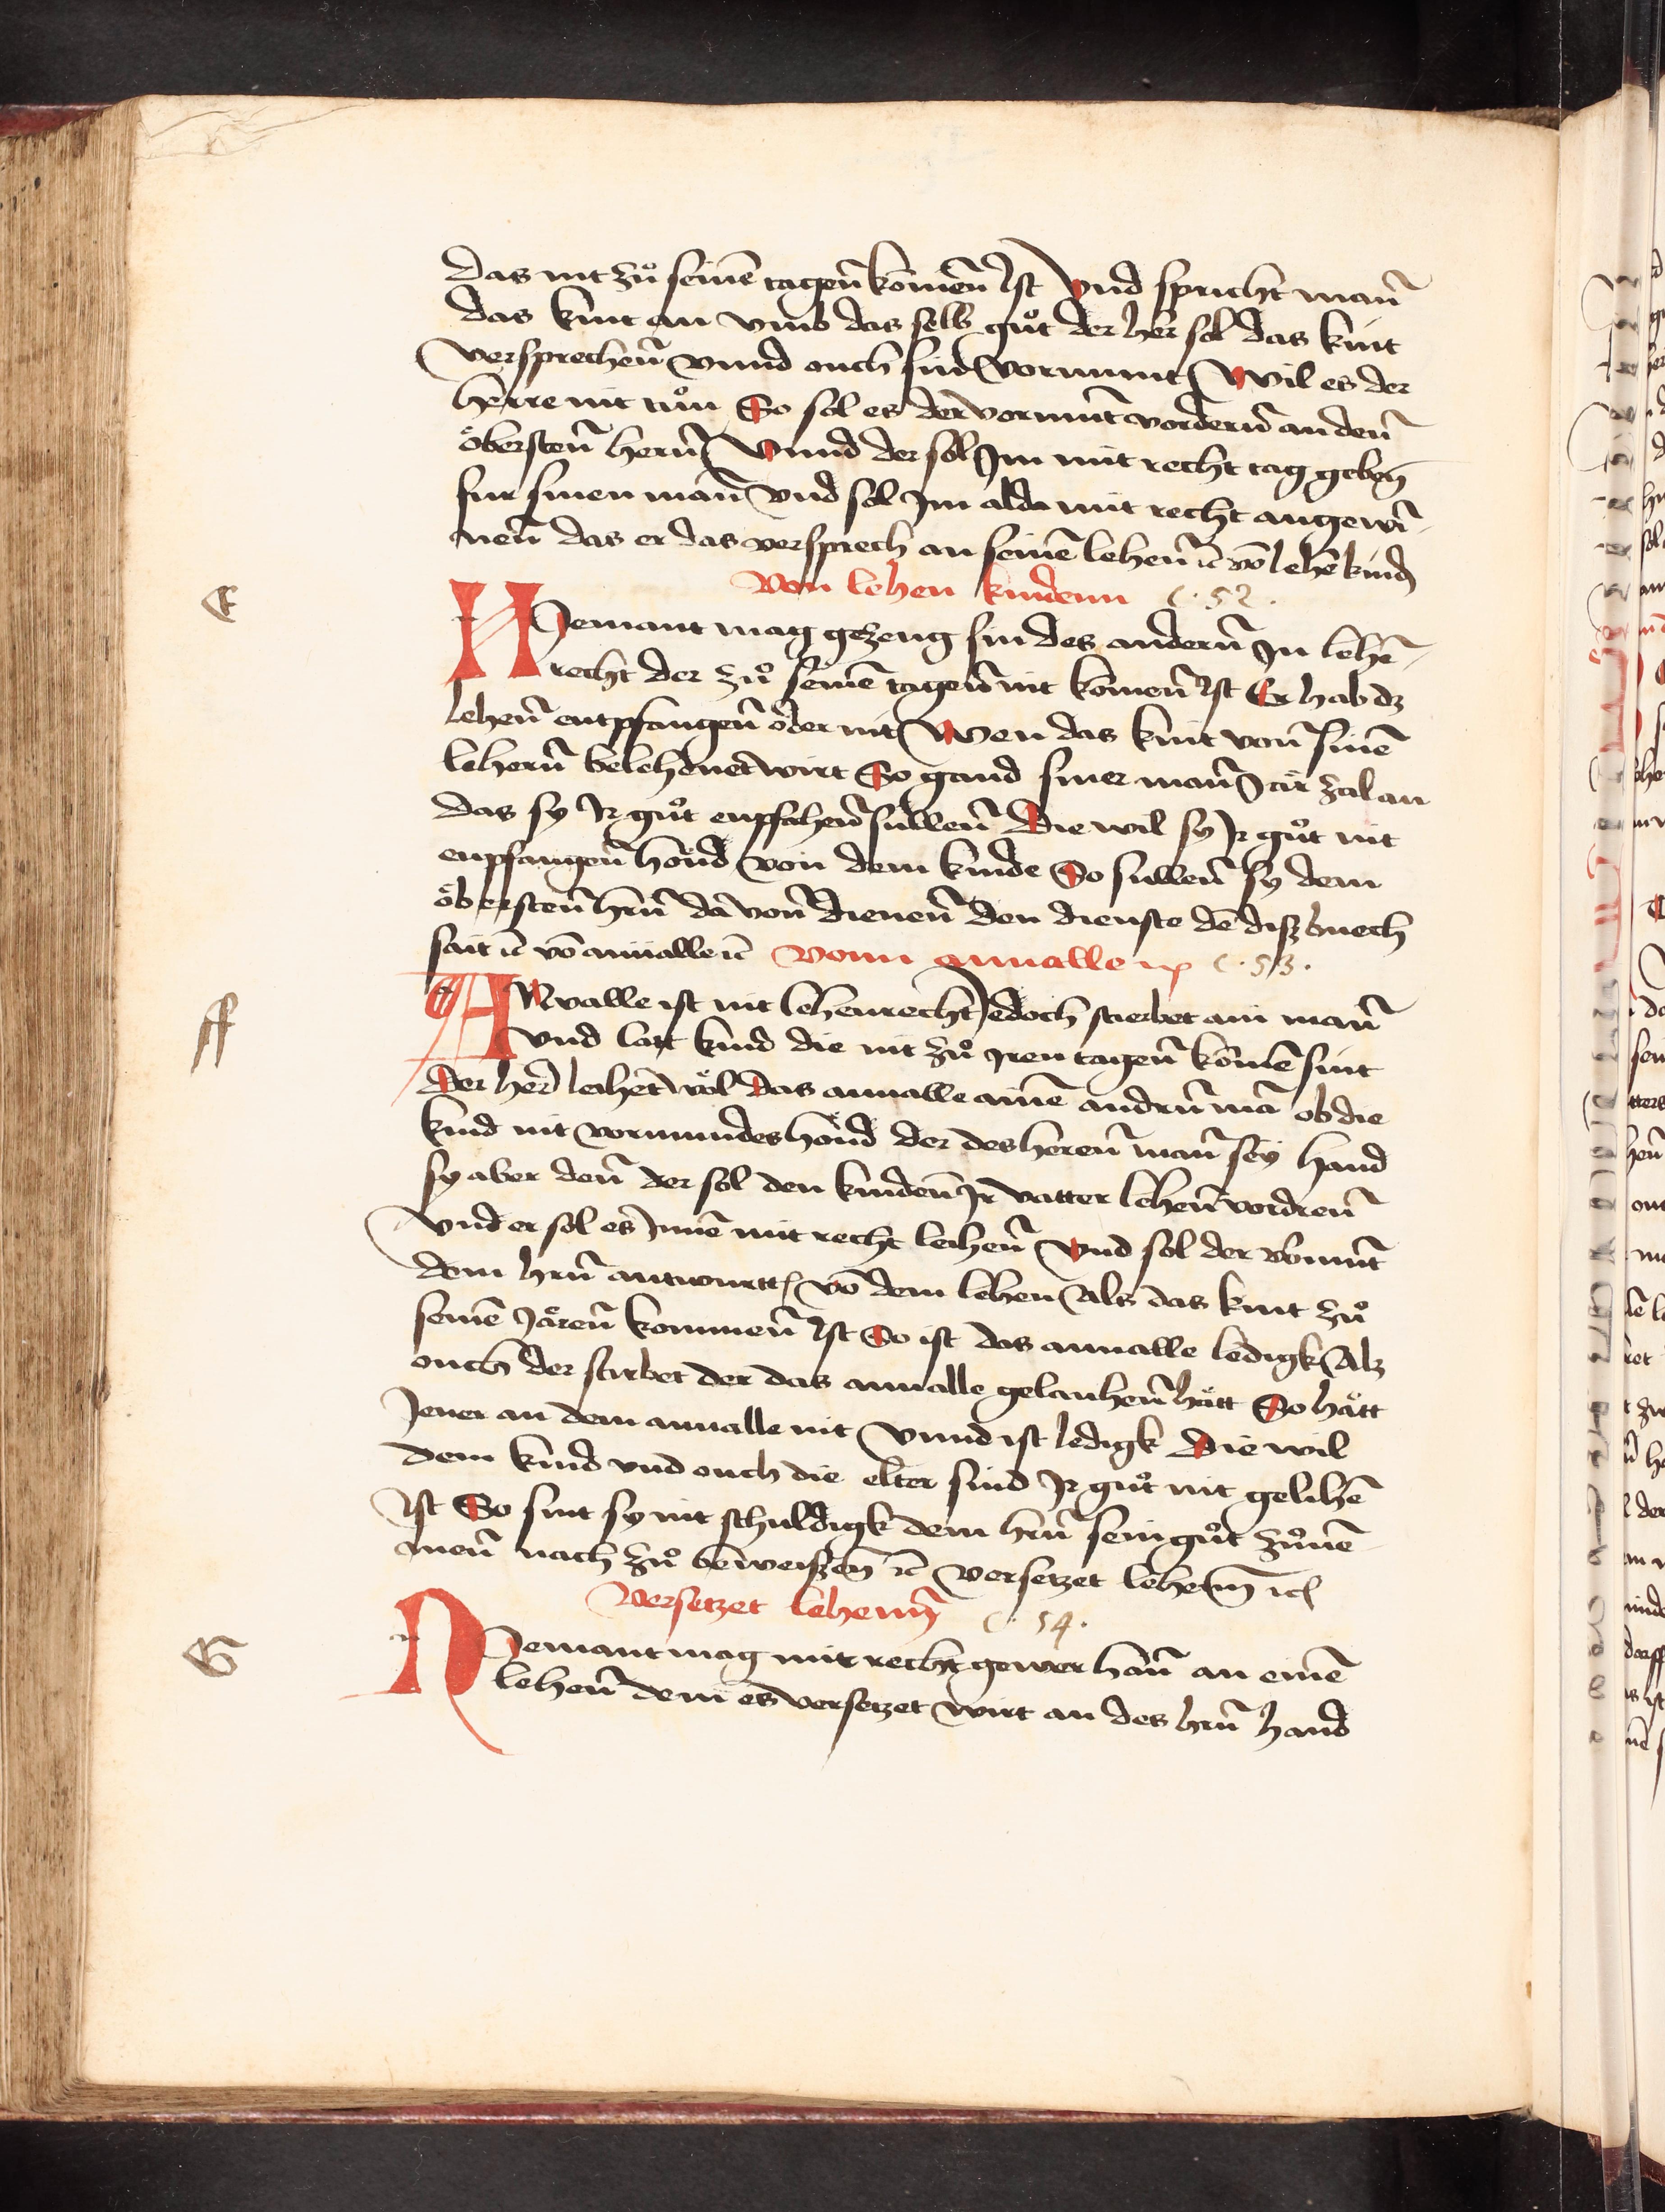 das nit zů seinē tagen̄ komen̄ Ist Vnd spricht man̄
das kint an vmb das selb gůt der her sol das kint
versprechen̄ vnnd ouch sin vormunt Wil es der
herre nit tůn So sol es der vormunt vordern̄ an den̄
öbersten̄ hern̄ Vnnd der sol Im mit recht tag geben
fur sinen man̄ vnd sol Im alda mit recht angewi-
nen̄ das er das versprech an seinē lehen̄ ⁊c võ lehē kind
Von lehen kindenn c. 52.
E
NIemant mag gezeug sin des andern̄ In lehē-
recht der zů seinē tagen̄ nit komen̄ Ist Er hab dz
lehen̄ entpfangen̄ oder nit Wen das kint von̄ sinē
lehern̄ belehenet wirt So gand siner man̄ Iar zal an
das sy Ir gůt enpfahen̄ sullen̄ Die wil sy Ir gůt nit
enpfangen̄ hond von dem kinde So sullen̄ sy dem
öbersten̄ hrn̄ da von̄ dienen̄ den dienste dē disz buech
sait ⁊c võ anualle ⁊c Vonn anualle ⁊c c. 53.
ff
ANvalle ist nit lehenrecht Iedoch sterbet ain man̄
vnd latt kind die nit zů Iren tagen̄ komē sint
der her lehet wöl das anualle ainē andrn̄ mā ob die
kind nit vormundes hond der des heren̄ man̄ sey hand
sy aber den̄ der sol den kinden̄ Ir vatter lehen̄ vordren̄
Vnd er sol es Innē mit recht leihen̄ Vnd sol der vormūt
dem hrn̄ antwurtt võ dem lehen Als das kint zů
seinē Iären̄ kommen̄ Ist So ist das anualle ledigk Alz
ouch der stirbet der das anualle gelauhen̄ hätt So hätt
Iener an dem anualle nit Vnnd ist ledigk Die wil
dem kind vnd ouch die elter sind Ir gůt nit gelihē
Ist So sint sy nit schuldigk dem hrn̄ sein gůt zů nē-
men̄ nach zů bewerszen̄ ⁊c versetzet lehenn̄ ⁊c
Versetzet lehenn c. 54.
G
NIemant mag mit recht gewer han̄ an einē
lehen̄ dem es versetzet wirt an des hrn̄ hand